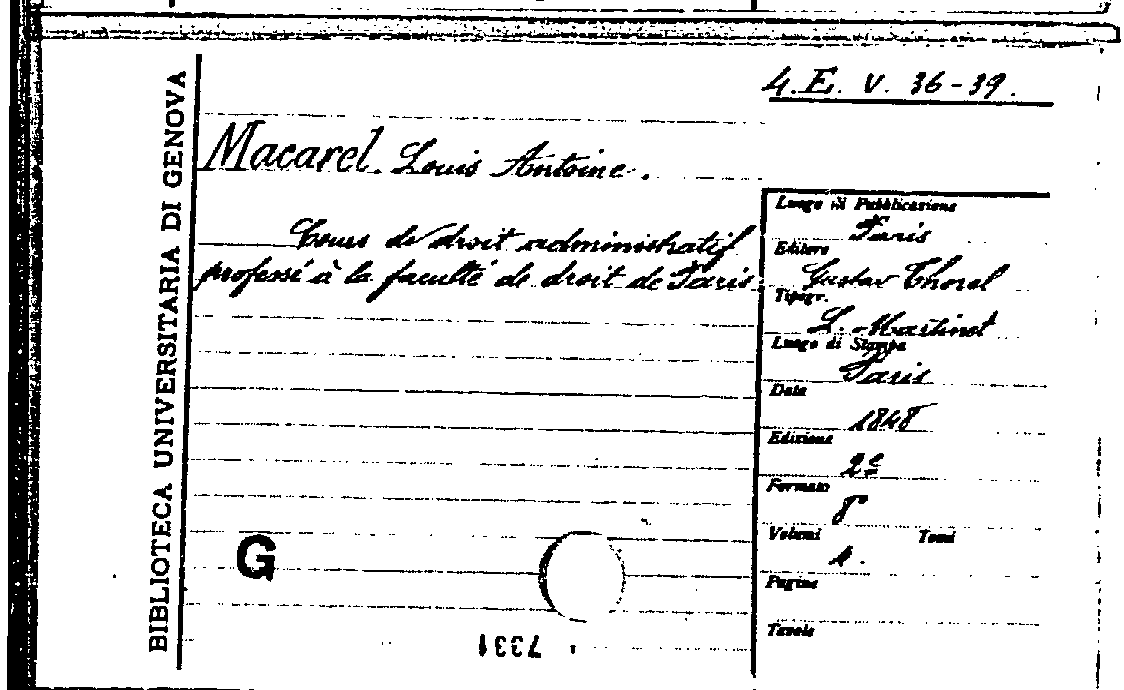 BIBLIOTECA UNIVERSITARIA DI GENOVA
4. E. V. 36-39.
Macarel. Louis Antoine.
Cours de droit administratif
professé à la faculté de droit de Paris.
Luogo di Pubblicazione
Paris
Editore
Gustav Thorel
Tipogr.
L. Martinet
Luogo di Stampa
Paris
Data
1848
Edizione
2e
Formato
8°
Volumi Tomi
4.
Pagine
Tavole
G
7331